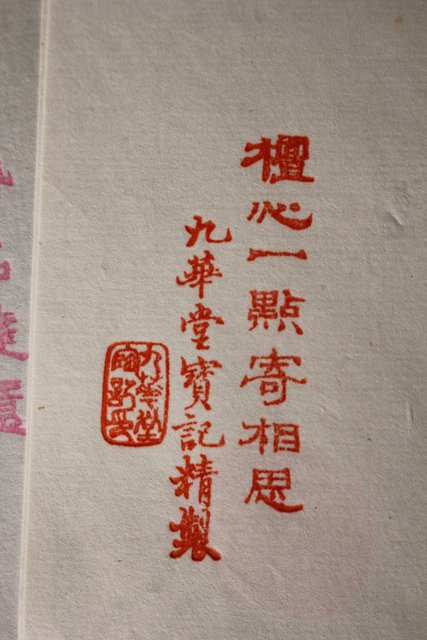 檀心一點寄相思
九華堂寶記精製
九華堂